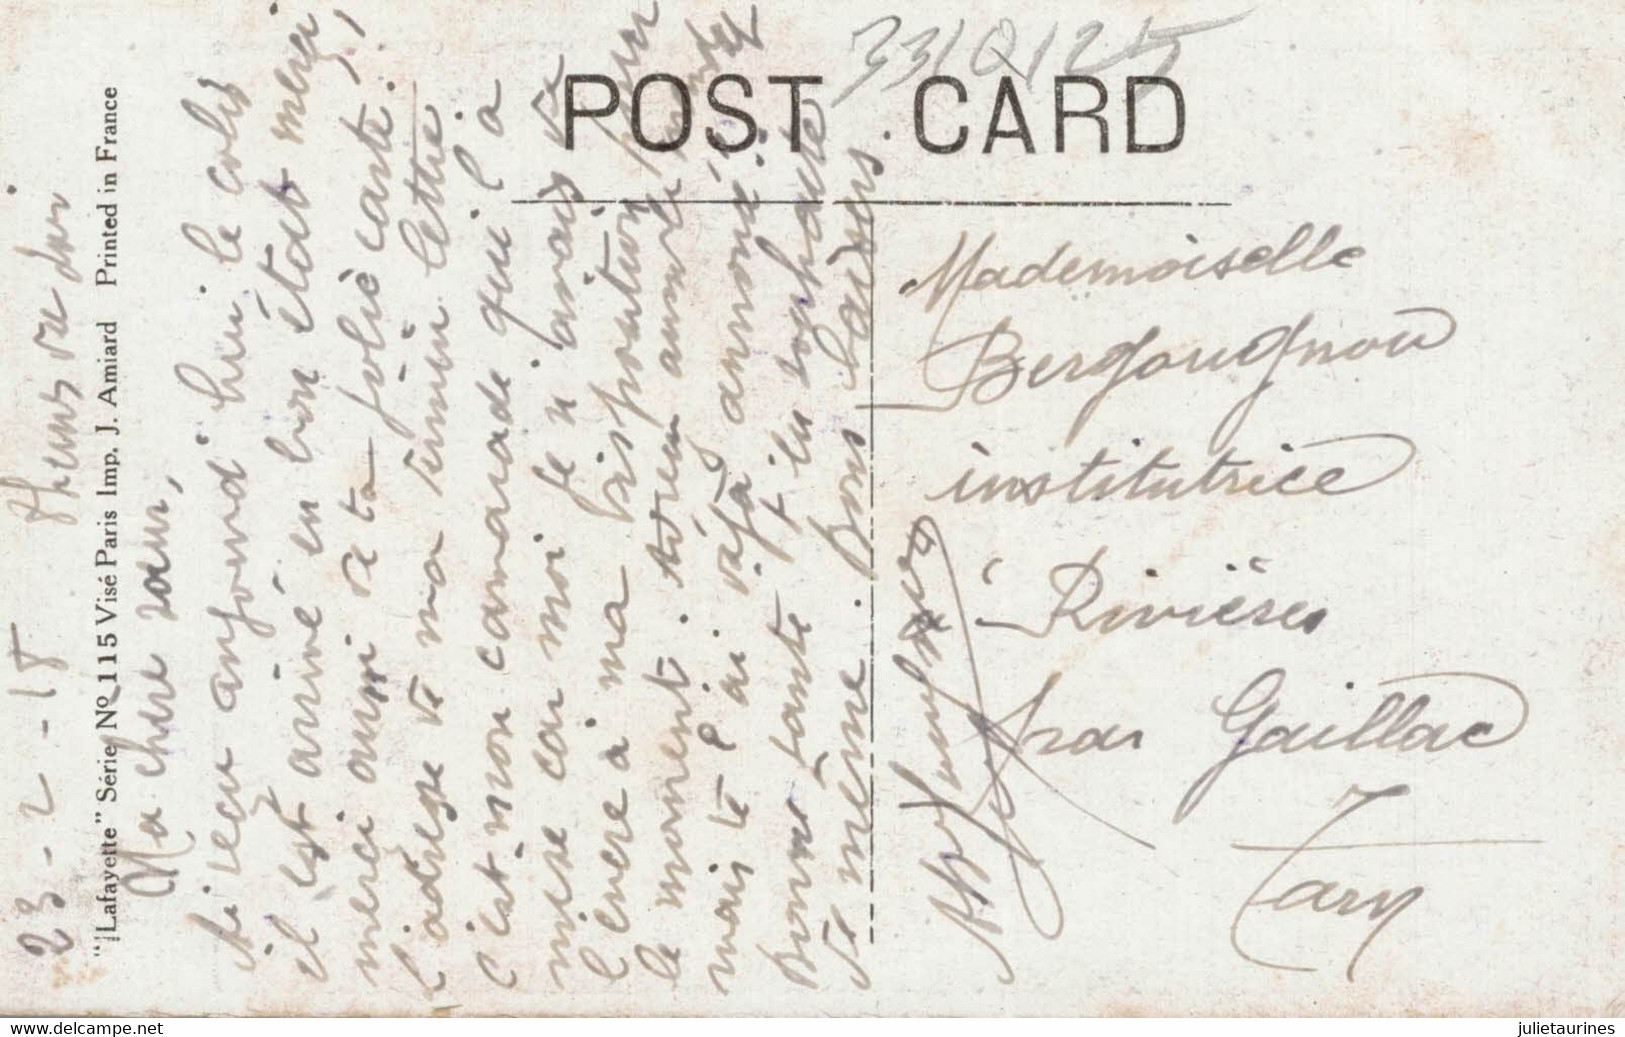 33/Q/25
POST CARD
"Lafayette" Série Nº 115 Visé Paris Imp. J. Amiard Printed in France
23-2-18 8 heures du soir
Ma chère sœur,
Ai reçu aujourd'hui le colis
il est arrivé en bon état merci,
merci aussi de ta jolie carte.
l'adresse de ma dernière lettre
c'est mon camarade qui l'a
mise car moi je n'avais de
l'encre à ma disposition pour
le moment.
mais te l'ai déjà annoncé.
Bonne santé je la souhaite
de même. Bons baisers
Mademoiselle
Bergougnou
institutrice
à Rivières
par Gaillac
Tarn
delcampe.net
julietaurines